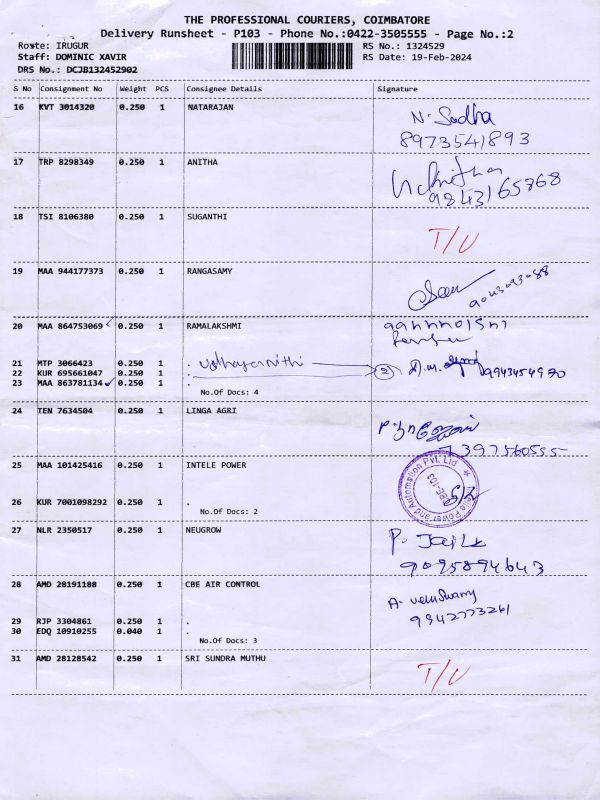 THE PROFESSIONAL COURIERS, COIMBATORE
Delivery Runsheet - P103 - Phone No.:0422-3505555 - Page No.:2
Route: IRUGUR RS No.: 1324529
Staff: DOMINIC XAVIR RS Date: 19-Feb-2024
DRS No.: DCJB132452902
S No Consignment No Weight PCS Consignee Details Signature
16 KVT 3014320 0.250 1 NATARAJAN N. Sudha
8973541893
17 TRP 8298349 0.250 1 ANITHA
9843165768
18 TSI 8106380 0.250 1 SUGANTHI T/U
19 MAA 944177373 0.250 1 RANGASAMY
20 MAA 864753069 0.250 1 RAMALAKSHMI
21 MTP 3066423 0.250 1 .
22 KUR 695661047 0.250 1 . 2 9943454970
23 MAA 863781134 0.250 1 .
No.Of Docs: 4
24 TEN 7634504 0.250 1 LINGA AGRI
7397560555
25 MAA 101425416 0.250 1 INTELE POWER
26 KUR 7001098292 0.250 1 .
No.Of Docs: 2
27 NLR 2350517 0.250 1 NEUGROW
9095894643
28 AMD 28191188 0.250 1 CBE AIR CONTROL A. veluswamy
9942773261
29 RJP 3304861 0.250 1 .
30 EDQ 10910255 0.040 1 .
No.Of Docs: 3
31 AMD 28128542 0.250 1 SRI SUNDRA MUTHU T/U